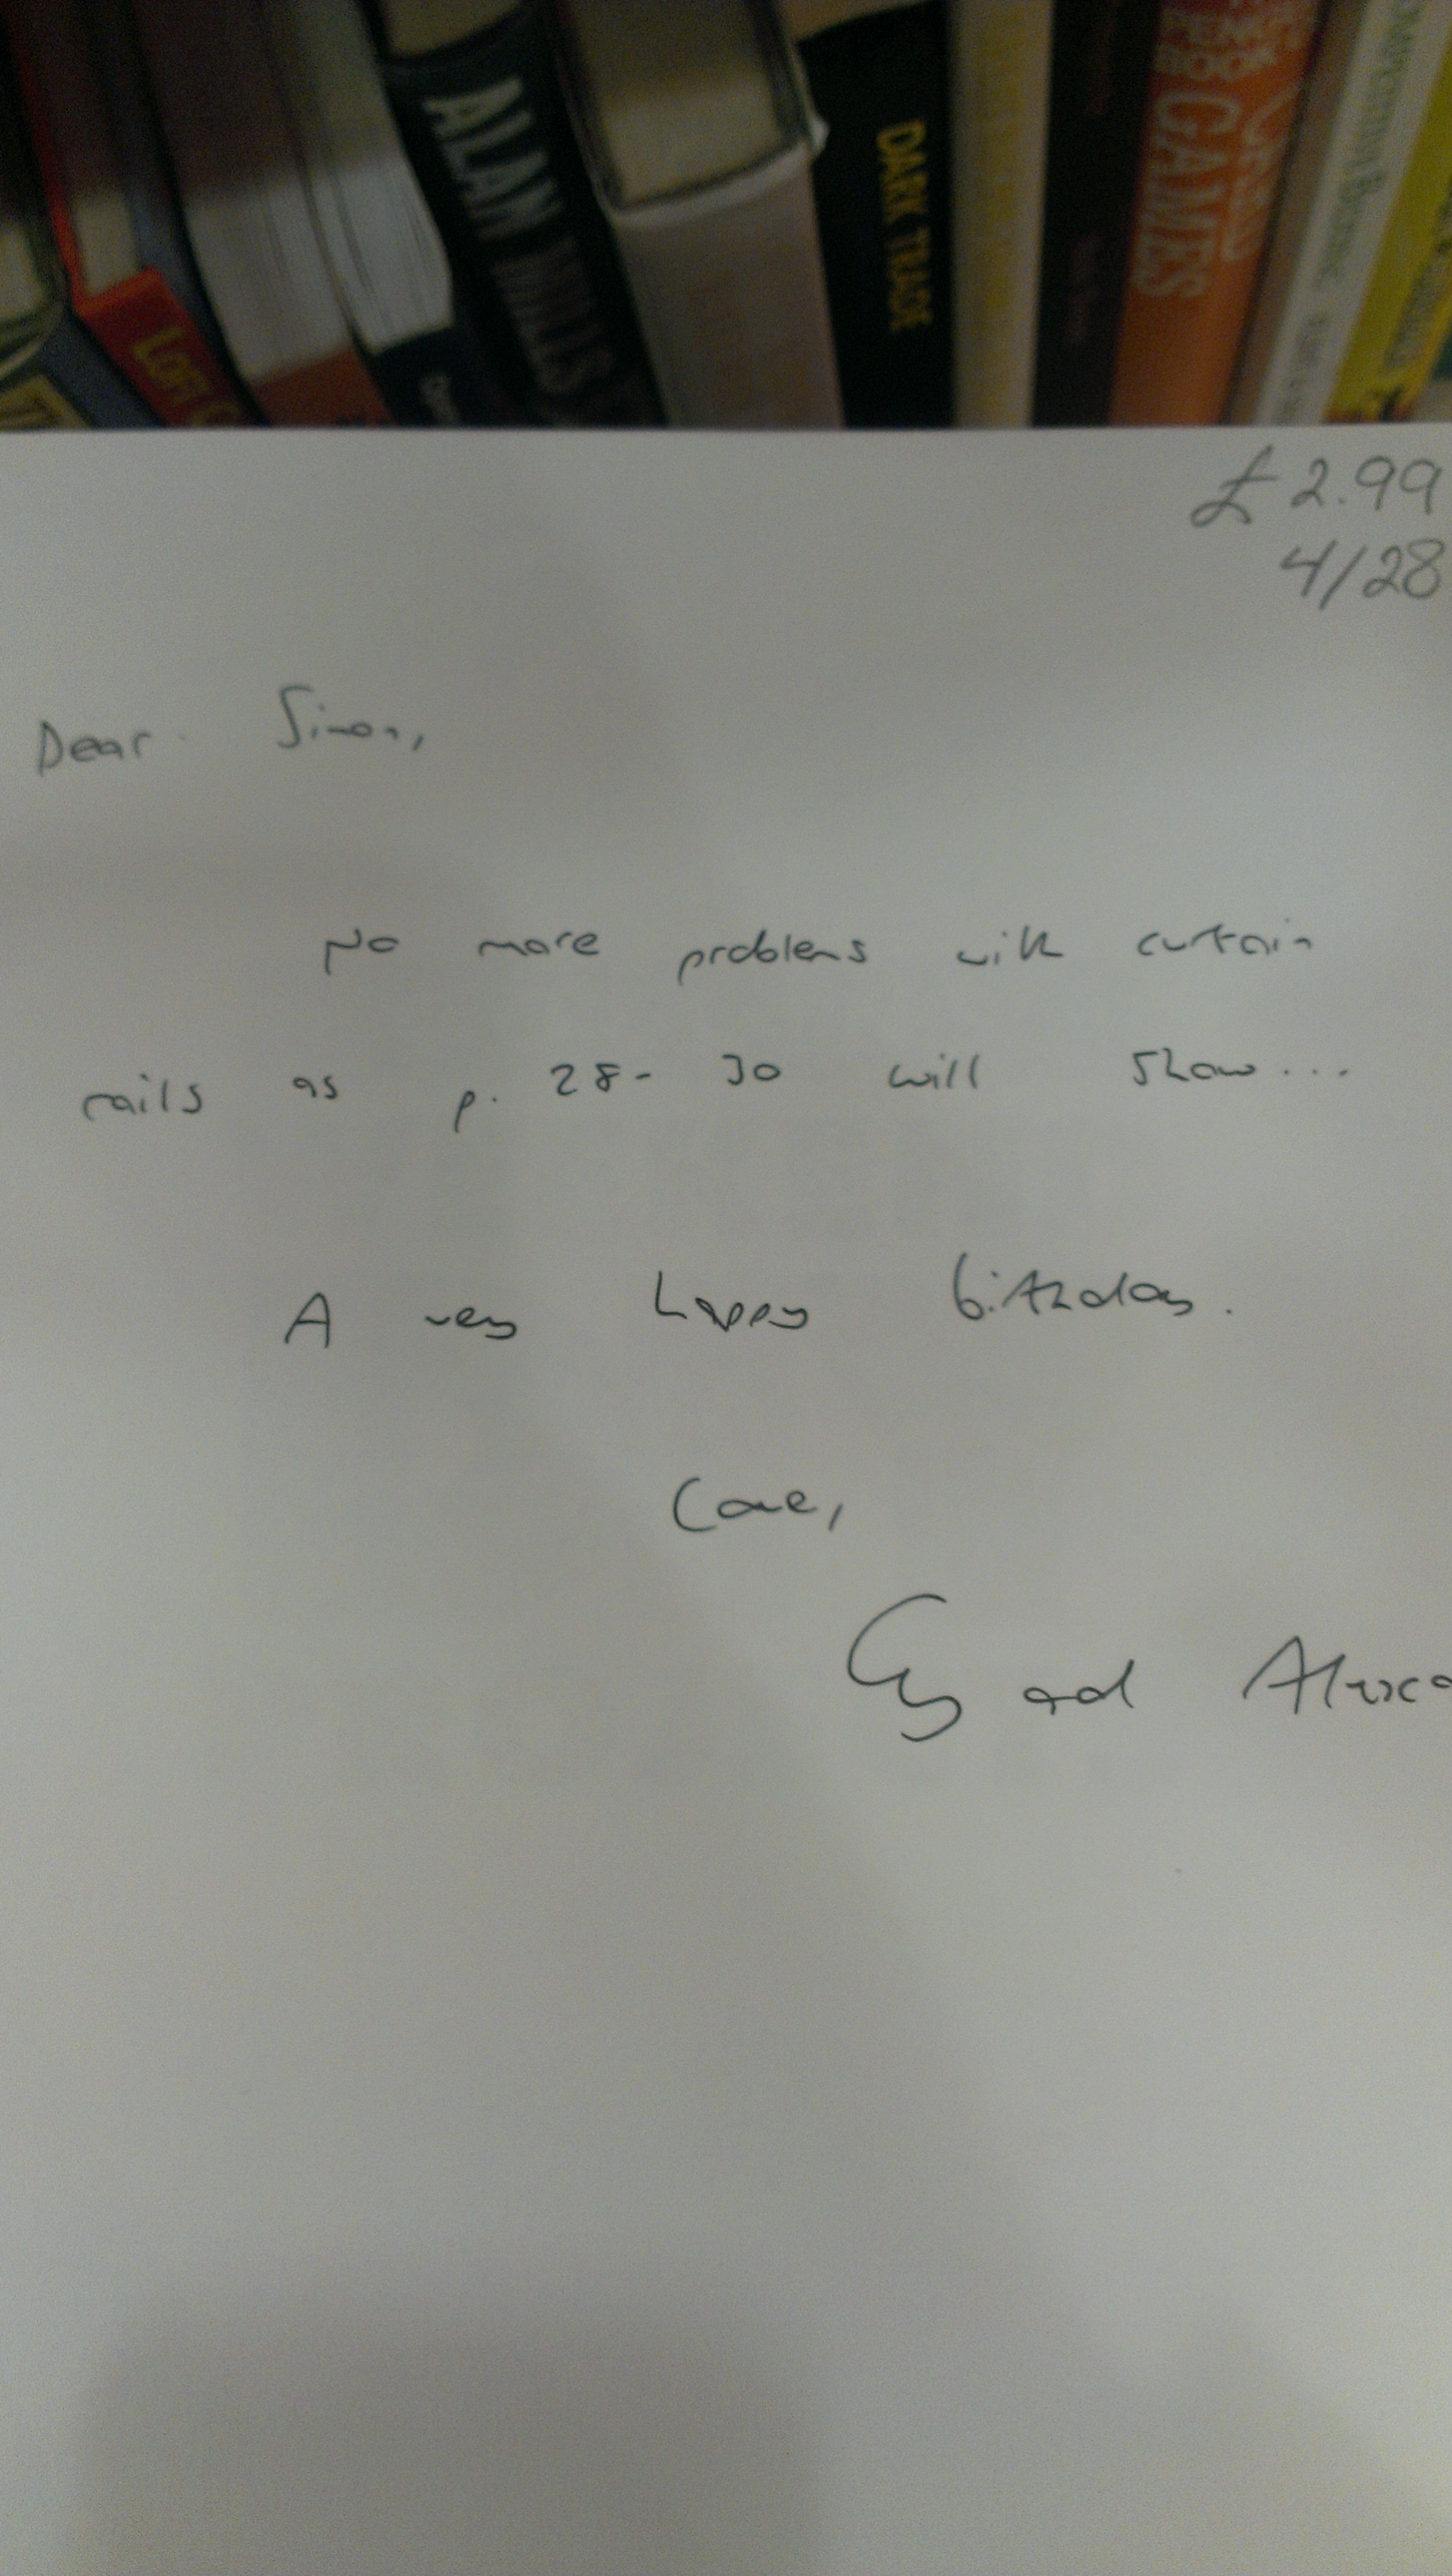 ALAN MILLS
DARK TRADE
GAMES
LOFT
£2.99
4/28
Dear Simon,
No more problems with curtain
rails as p. 28-30 will show...
A very happy birthday.
Love,
and